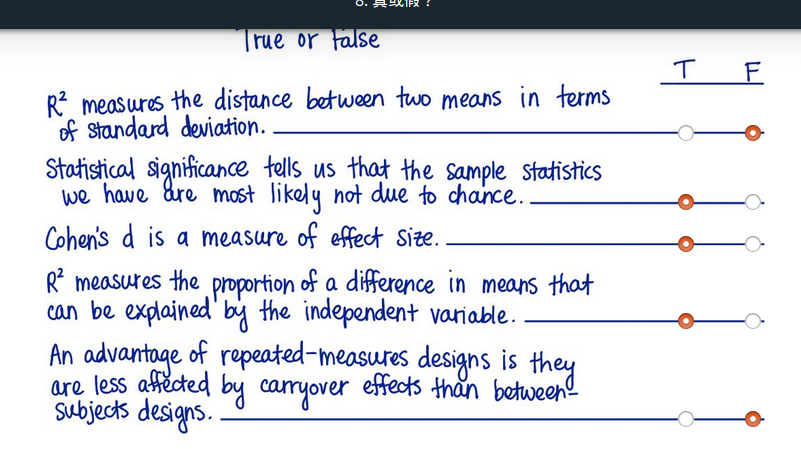 8. 真或假？
True or False
T F
R² measures the distance between two means in terms
of standard deviation.
Statistical significance tells us that the sample statistics
we have are most likely not due to chance.
Cohen's d is a measure of effect size.
R² measures the proportion of a difference in means that
can be explained by the independent variable.
An advantage of repeated-measures designs is they
are less affected by carryover effects than between-
subjects designs.